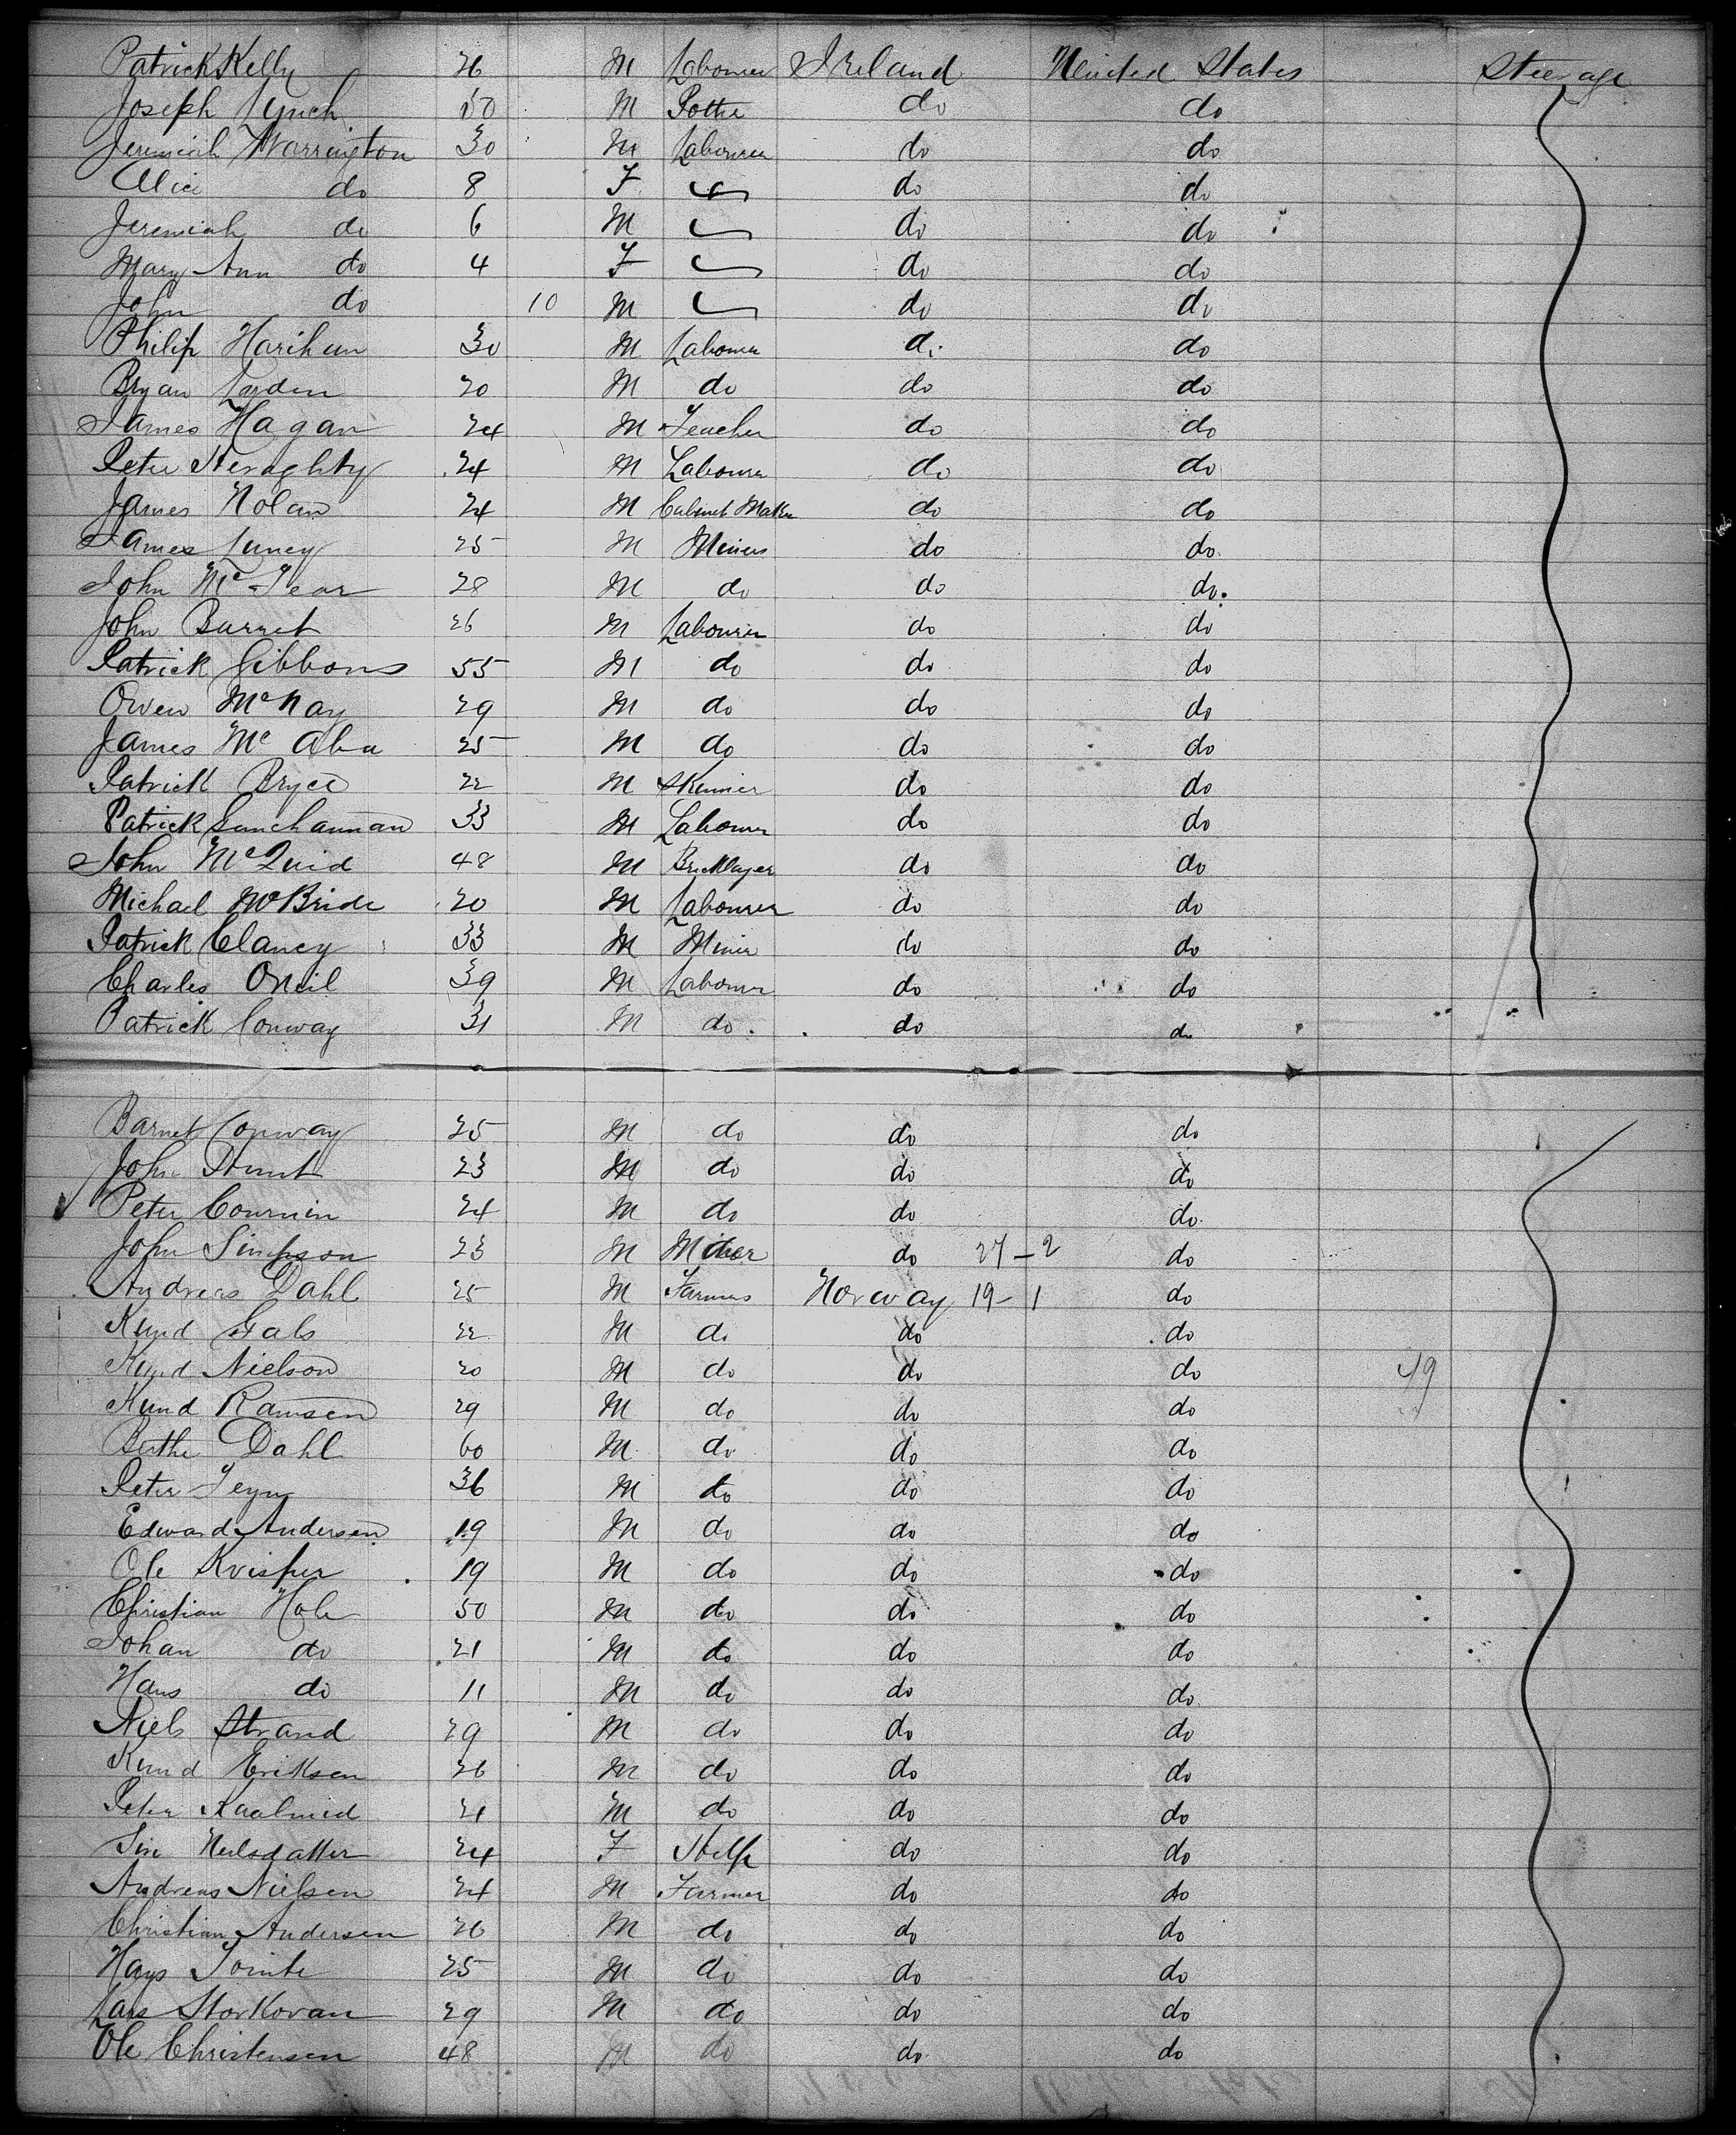 Patrick Kelly 26 M Labourer Ireland United States Steerage
Joseph Lynch 50 M do do
Jeremiah Warrington 30 M Labourer do do
Alice do 8 F do do
Jeremiah do 6 M do do
Mary Ann do 4 F do do
John do 10 M do do
Philip Harihan 30 M Labourer do do
Bryan Layden 20 M do do do
James Hagan 24 M Teacher do do
Peter Heraghty 24 M Labourer do do
James Nolan 24 M Cabinet Maker do do
James Luney 25 M Miner do do
John Mc 28 M do do do
John Barret 26 M Labourer do do
Patrick Gibbons 55 M do do do
Owen McNay 29 M do do do
James Mc Aba 25 M do do do
Patrick Bryce 22 M Skinner do do
Patrick 33 M Labourer do do
John McQuid 48 M Bricklayer do do
Michael McBride 20 M Labourer do do
Patrick Clancy 33 M Miner do do
Charles ONeil 39 M Labourer do do
Patrick Conway 31 M do do do
Barnet Conway 25 M do do do
John 23 M do do do
Peter 24 M do do do
John Simpson 23 M do 27 - 2 do
Andreas Dahl 25 M Farmer Norway 19 - 1 do
Knud Gals 22 M do do do
Knud Nielson 20 M do do do 49
Knud Ramsen 29 M do do do
Berthe Dahl 60 M do do do
Peter 36 M do do do
Edward Andersen 19 M do do do
Ole 19 M do do do
Christian Hole 50 M do do do
Johan do 21 M do do do
Hans do 11 M do do do
Niels Strand 29 M do do do
Knud Eriksen 26 M do do do
Peter 21 M do do do
Siri Neilsdatter 24 F Help do do
Andreas Nielsen 24 M Farmer do do
Christian Andersen 26 M do do do
Hans 25 M do do do
Lars Storkovan 29 M do do do
Ole Christensen 48 M do do do